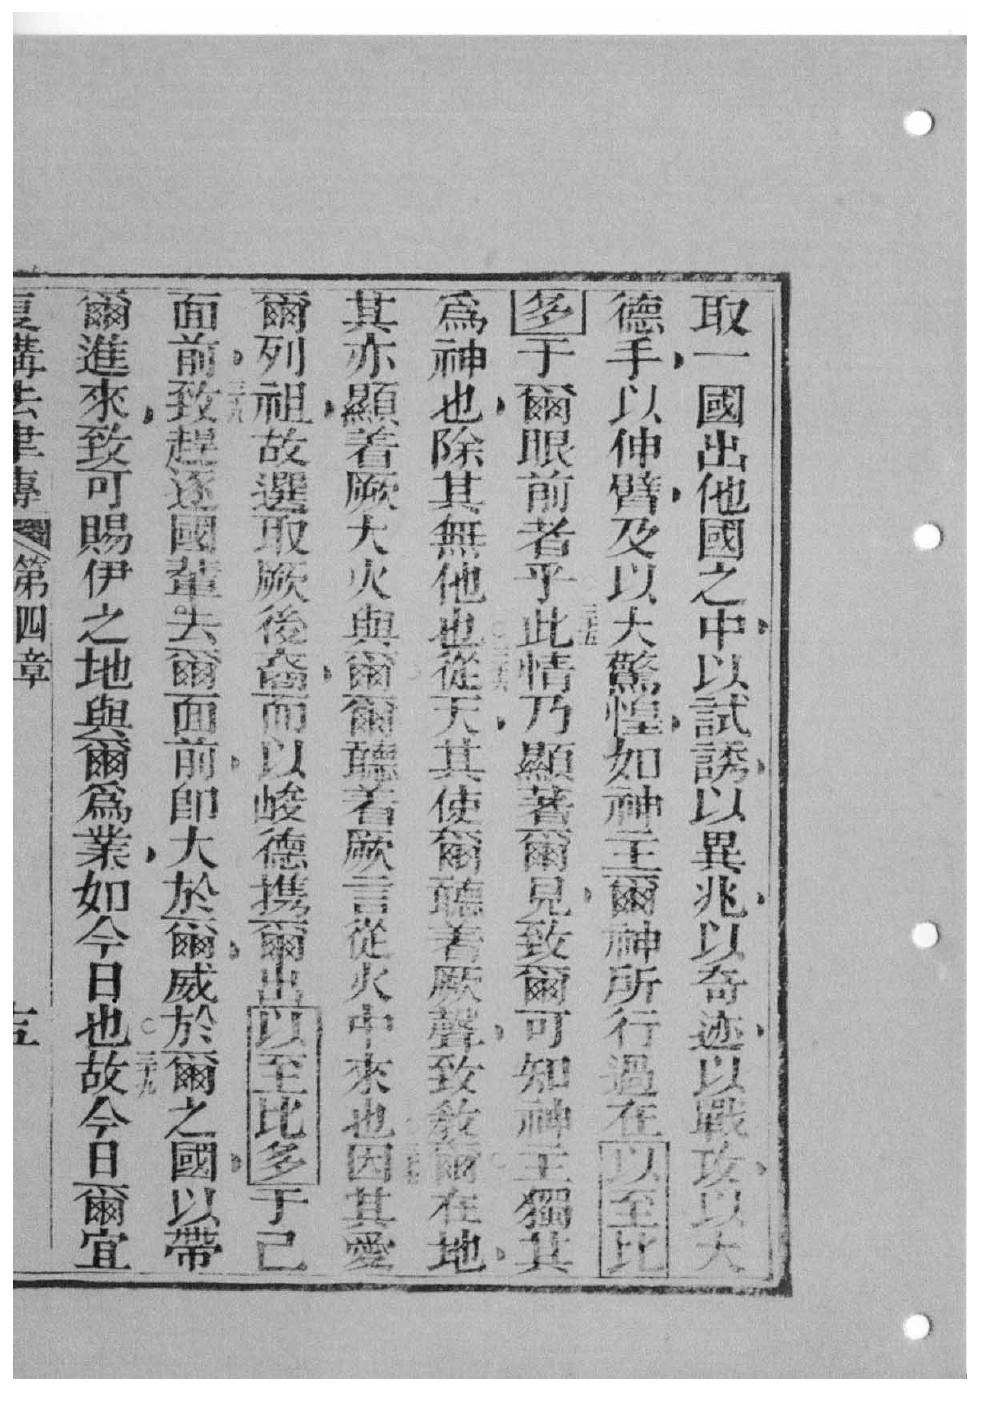 取一國出他國之中以試誘以異兆以奇迹以戰攻以大
德手以伸臂及以大驚惶如神主爾神所行過在以至比
多于爾眼前者乎三十五此情乃顯著爾見致爾可知神主獨其
爲神也除其無他也三十六從天其使爾聽着厥聲致敎爾在地
其亦顯着厥大火與爾爾聽着厥言從火中來也因其愛
爾列祖故選取厥後裔而以峻德携爾出以至比多于己
面前三十八致趕逐國輩去爾面前卽大於爾威於爾之國以帶
爾進來致可賜伊之地與爾爲業如今日也三十九故今日爾宜
復講法律傳 第四章